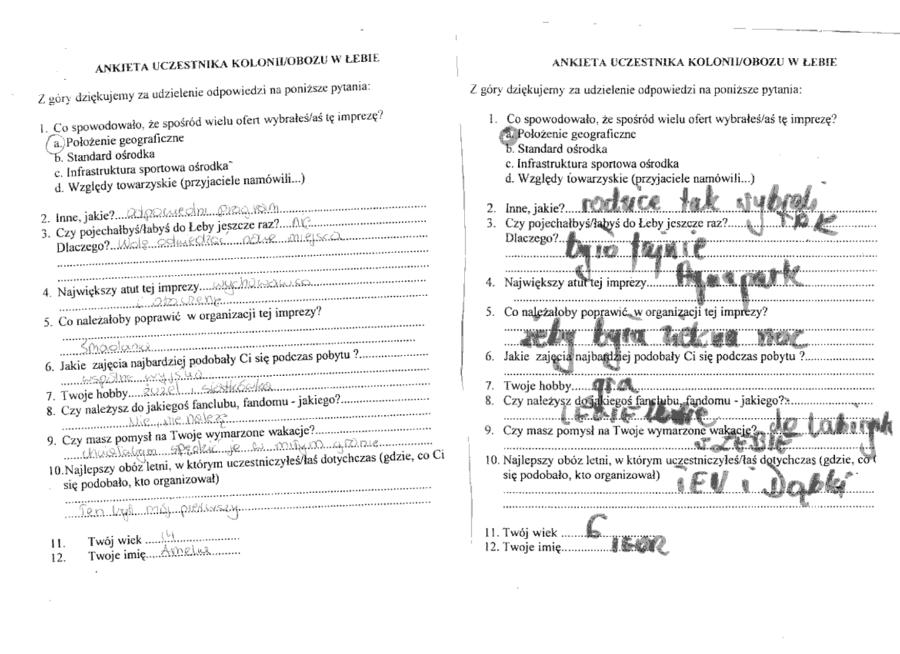 ANKIETA UCZESTNIKA KOLONII/OBOZU W ŁEBIE
Z góry dziękujemy za udzielenie odpowiedzi na poniższe pytania:
1. Co spowodowało, że spośród wielu ofert wybrałeś/aś tę imprezę?
a. Położenie geograficzne
b. Standard ośrodka
c. Infrastruktura sportowa ośrodka
d. Względy towarzyskie (przyjaciele namówili...)
2. Inne, jakie?...odpowiedni program
3. Czy pojechałbyś/łabyś do Łeby jeszcze raz?....nie
Dlaczego?..Wolę odwiedzać nowe miejsca
4. Największy atut tej imprezy....wychowawca
i otoczenie
5. Co należałoby poprawić w organizacji tej imprezy?
śniadania
6. Jakie zajęcia najbardziej podobały Ci się podczas pobytu ?
wspólne wyjścia
7. Twoje hobby....żużel i siatkówka
8. Czy należysz do jakiegoś fanclubu, fandomu - jakiego?
Nie, nie należę
9. Czy masz pomysł na Twoje wymarzone wakacje?
chciałabym spędzić je w miłym gronie
10.Najlepszy obóz letni, w którym uczestniczyłeś/łaś dotychczas (gdzie, co Ci
się podobało, kto organizował)
Ten był mój pierwszy
11. Twój wiek ....14
12. Twoje imię....Amelia
ANKIETA UCZESTNIKA KOLONII/OBOZU W ŁEBIE
Z góry dziękujemy za udzielenie odpowiedzi na poniższe pytania:
1. Co spowodowało, że spośród wielu ofert wybrałeś/aś tę imprezę?
a. Położenie geograficzne
b. Standard ośrodka
c. Infrastruktura sportowa ośrodka
d. Względy towarzyskie (przyjaciele namówili...)
2. Inne, jakie?....rodzice tak wybrali
3. Czy pojechałbyś/łabyś do Łeby jeszcze raz?....TAK
Dlaczego?..było fajnie
4. Największy atut tej imprezy....Aquapark
5. Co należałoby poprawić w organizacji tej imprezy?
żeby była noc
6. Jakie zajęcia najbardziej podobały Ci się podczas pobytu ?
7. Twoje hobby....gra
8. Czy należysz do jakiegoś fanclubu, fandomu - jakiego?
9. Czy masz pomysł na Twoje wymarzone wakacje?..do
10. Najlepszy obóz letni, w którym uczestniczyłeś/łaś dotychczas (gdzie, co C
się podobało, kto organizował)
11. Twój wiek ....6
12. Twoje imię....IGOR